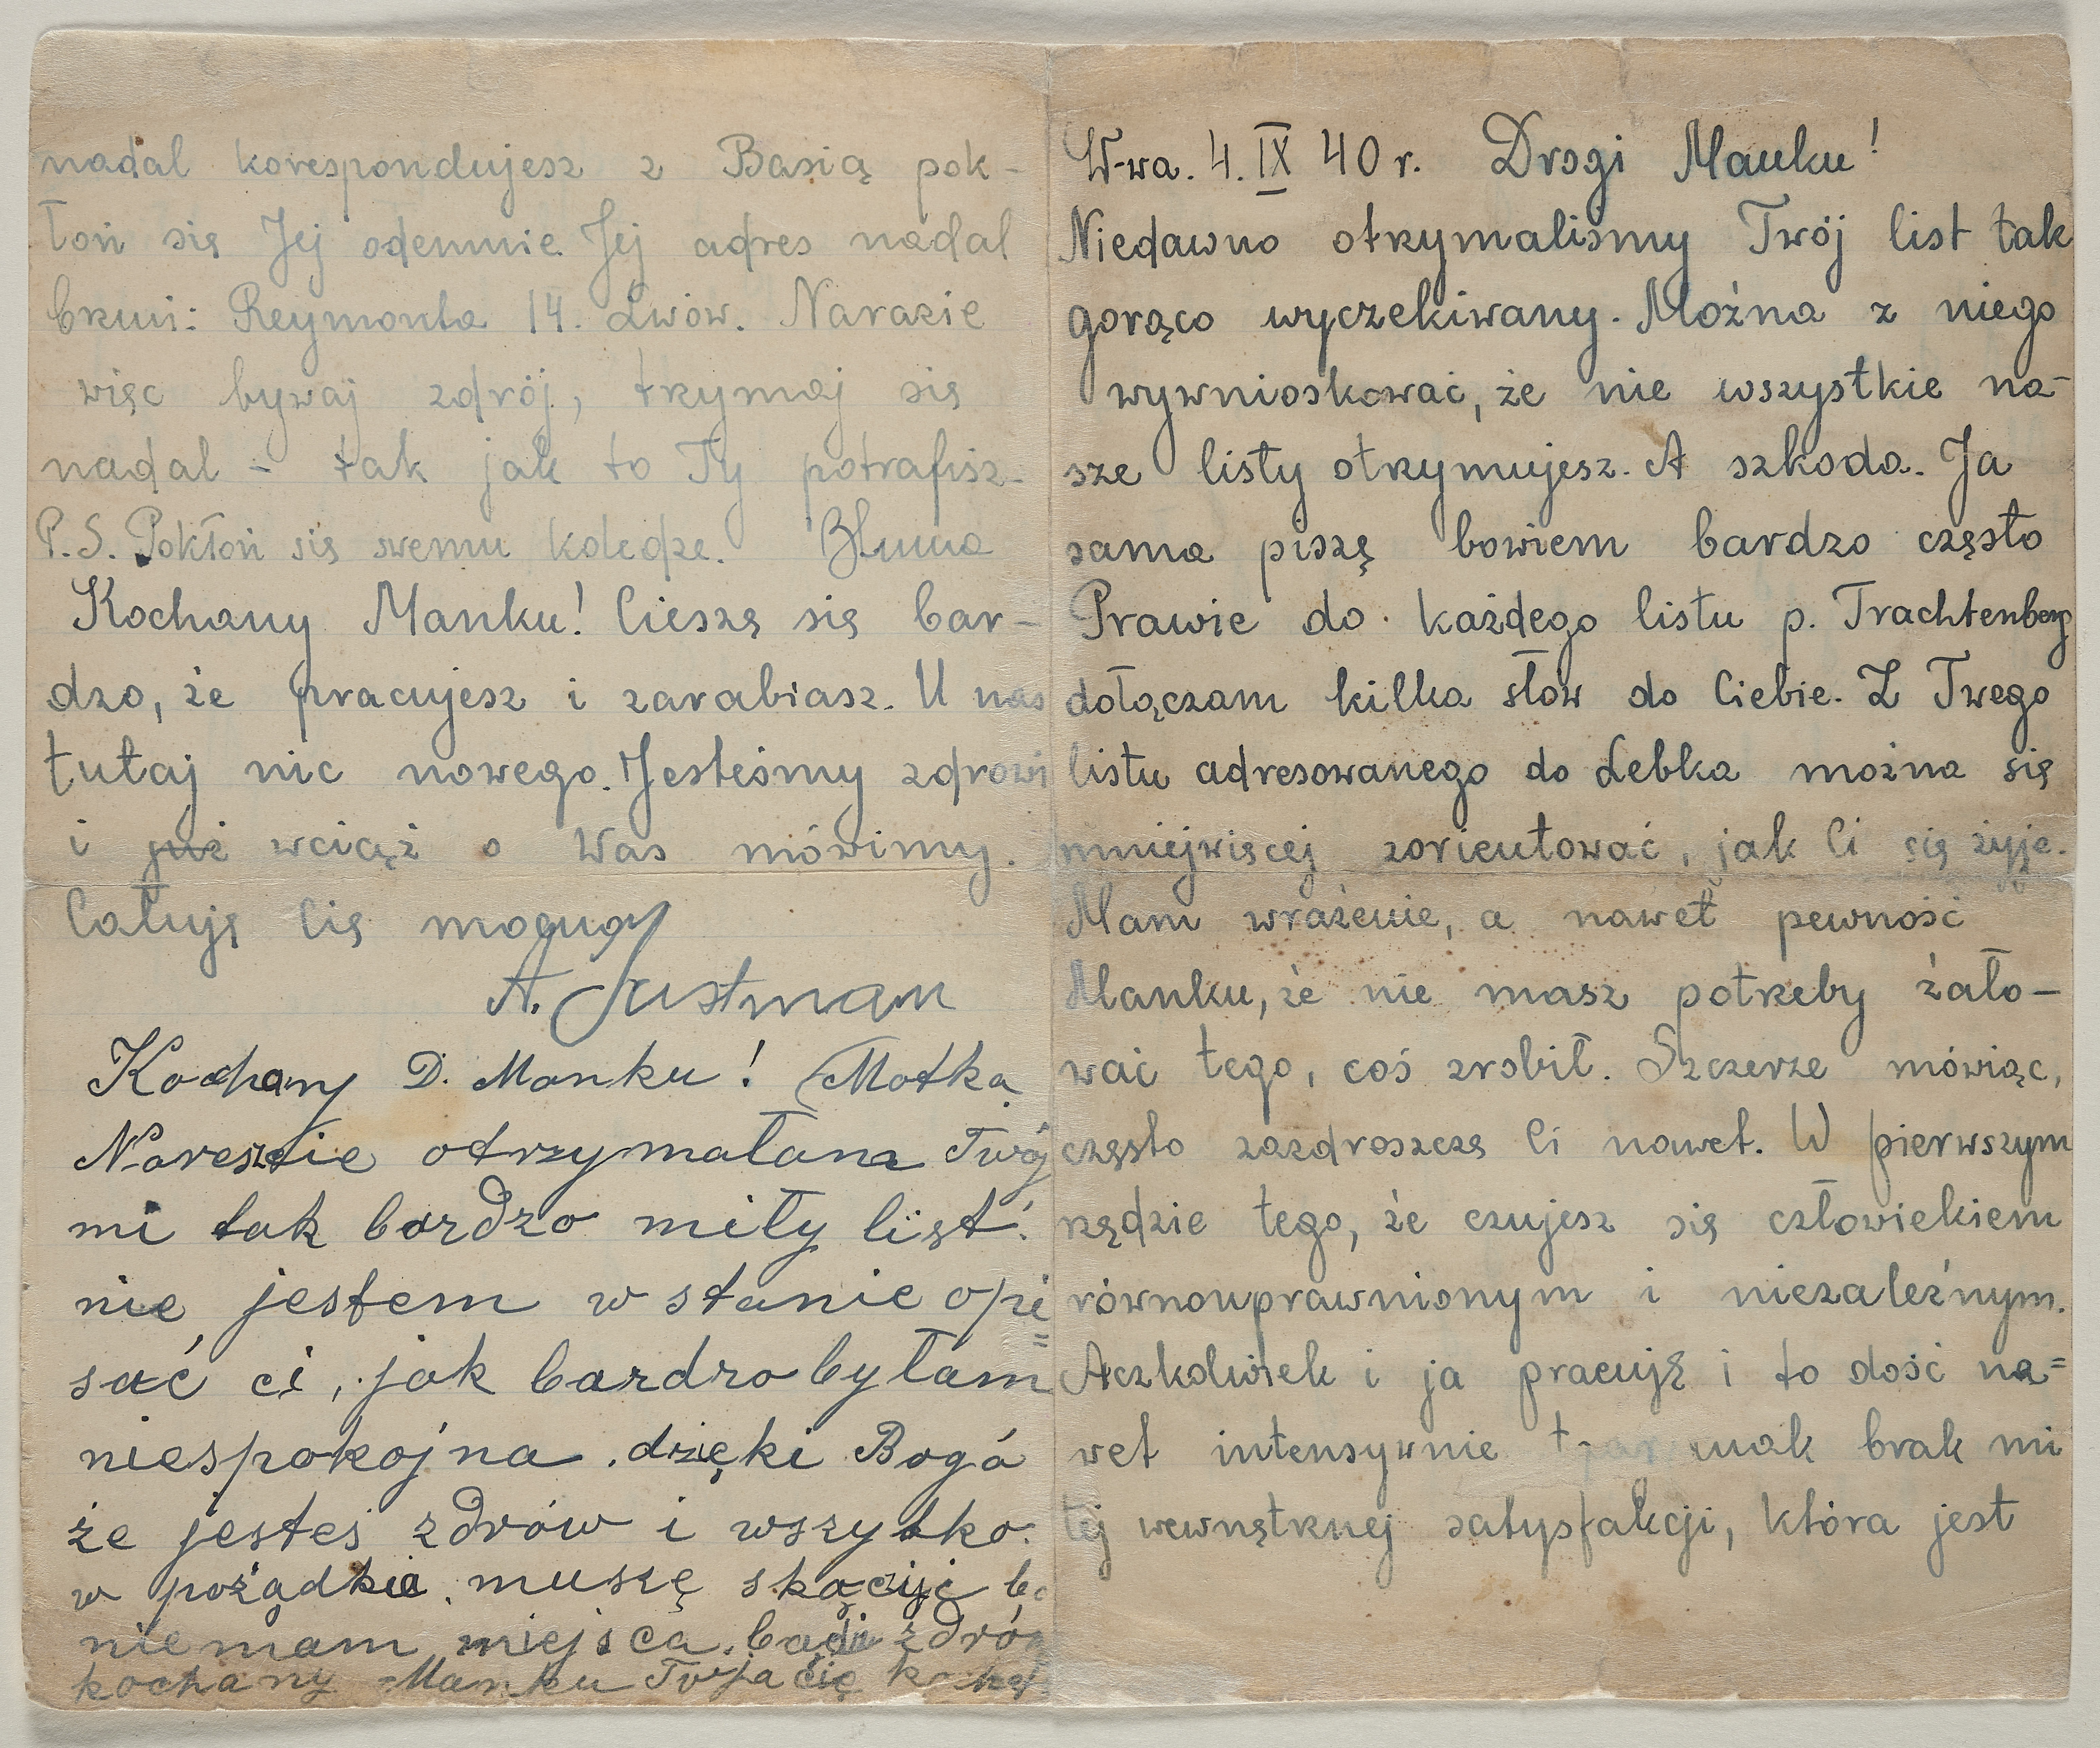 W-wa. 4. IX 40 r. Drogi Manku!
Niedawno otrzymaliśmy Twój list tak
gorąco wyczekiwany. Można z niego
wywnioskować, że nie wszystkie na-
sze listy otrzymujesz. A szkoda. Ja
sama piszę bowiem bardzo często
Prawie do każdego listu p. Trachtenberg
dołączam kilka słów do Ciebie. Z Twego
listu adresowanego do Lebka można się
mniejwięcej zorientować, jak Ci się żyje.
Mam wrażenie, a nawet pewność
Manku, że nie masz potrzeby żało-
wać tego, coś zrobił. Szczerze mówiąc,
często zazdroszczę Ci nawet. W pierwszym
rzędzie tego, że czujesz się człowiekiem
równouprawnionym i niezależnym.
Aczkolwiek i ja pracuję i to dość na=
wet intensywnie brak mi
tej wewnętrznej satysfakcji, która jest
nadal korespondujesz z Basią pok-
łoń się Jej odemnie. Jej adres nadal
brzmi: Reymonta 14. Lwów. Narazie
więc bywaj zdrój, trzymaj się
nadal - tak jak to Ty potrafisz-
P.S. Pokłoń się swemu koledze. Bluma
Kochany Manku! Cieszę się bar-
dzo, że pracujesz i zarabiasz. U nas
tutaj nic nowego. Jesteśmy zdrowi
i już wciąż o Was mówimy.
Całuję Cię mocno
A. Justman
Kochany D. Manku! Matka
Nareszcie otrzymałam Twój
mi tak bardzo miły list.
nie jestem w stanie opi
=
sać ci, jak bardzo byłam
niespokojna. dzięki Bogó
że jesteś zdrów i wszytko.
w pożądkie. muszę skączyć bo
niemam miejsca. bądź zdró
kochany Manku Twoja cię